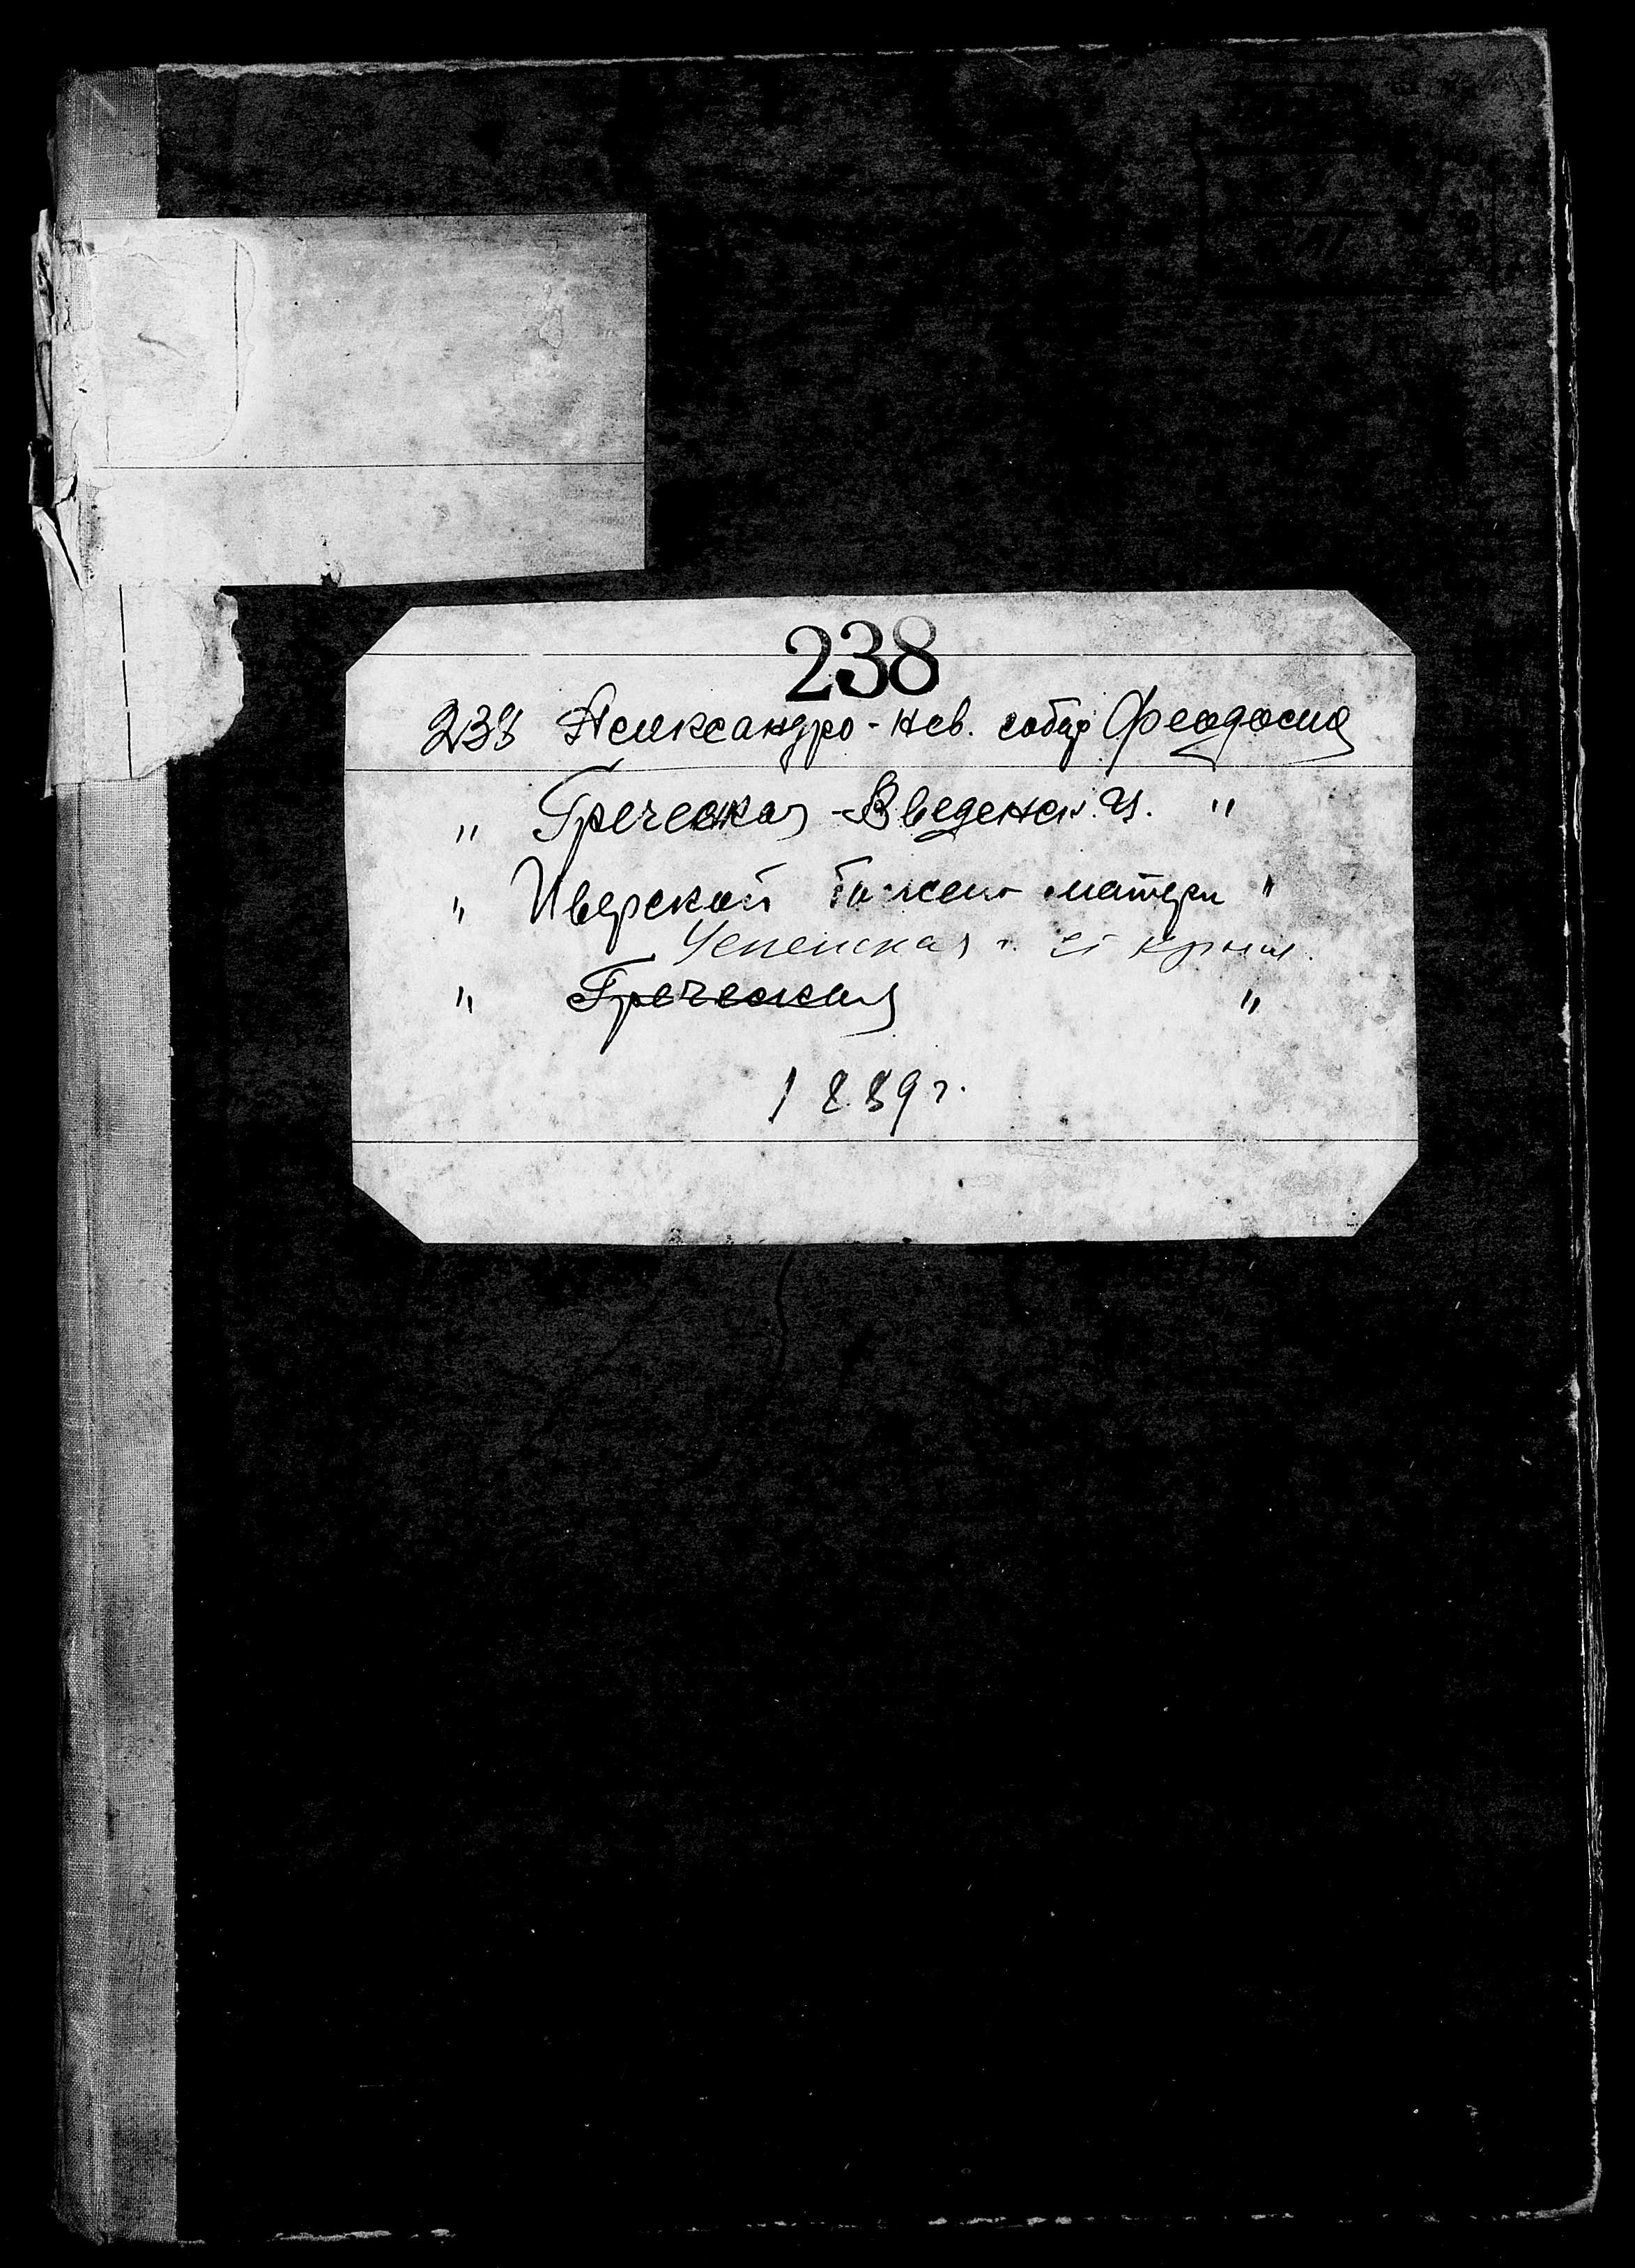 238
238 Александро-Нев. собор Феодосия
" Греческая-Введенск. ц. "
" Иверской Божией матери "
Успенская г. Ст Крым.
" Греческая "
1889 г.